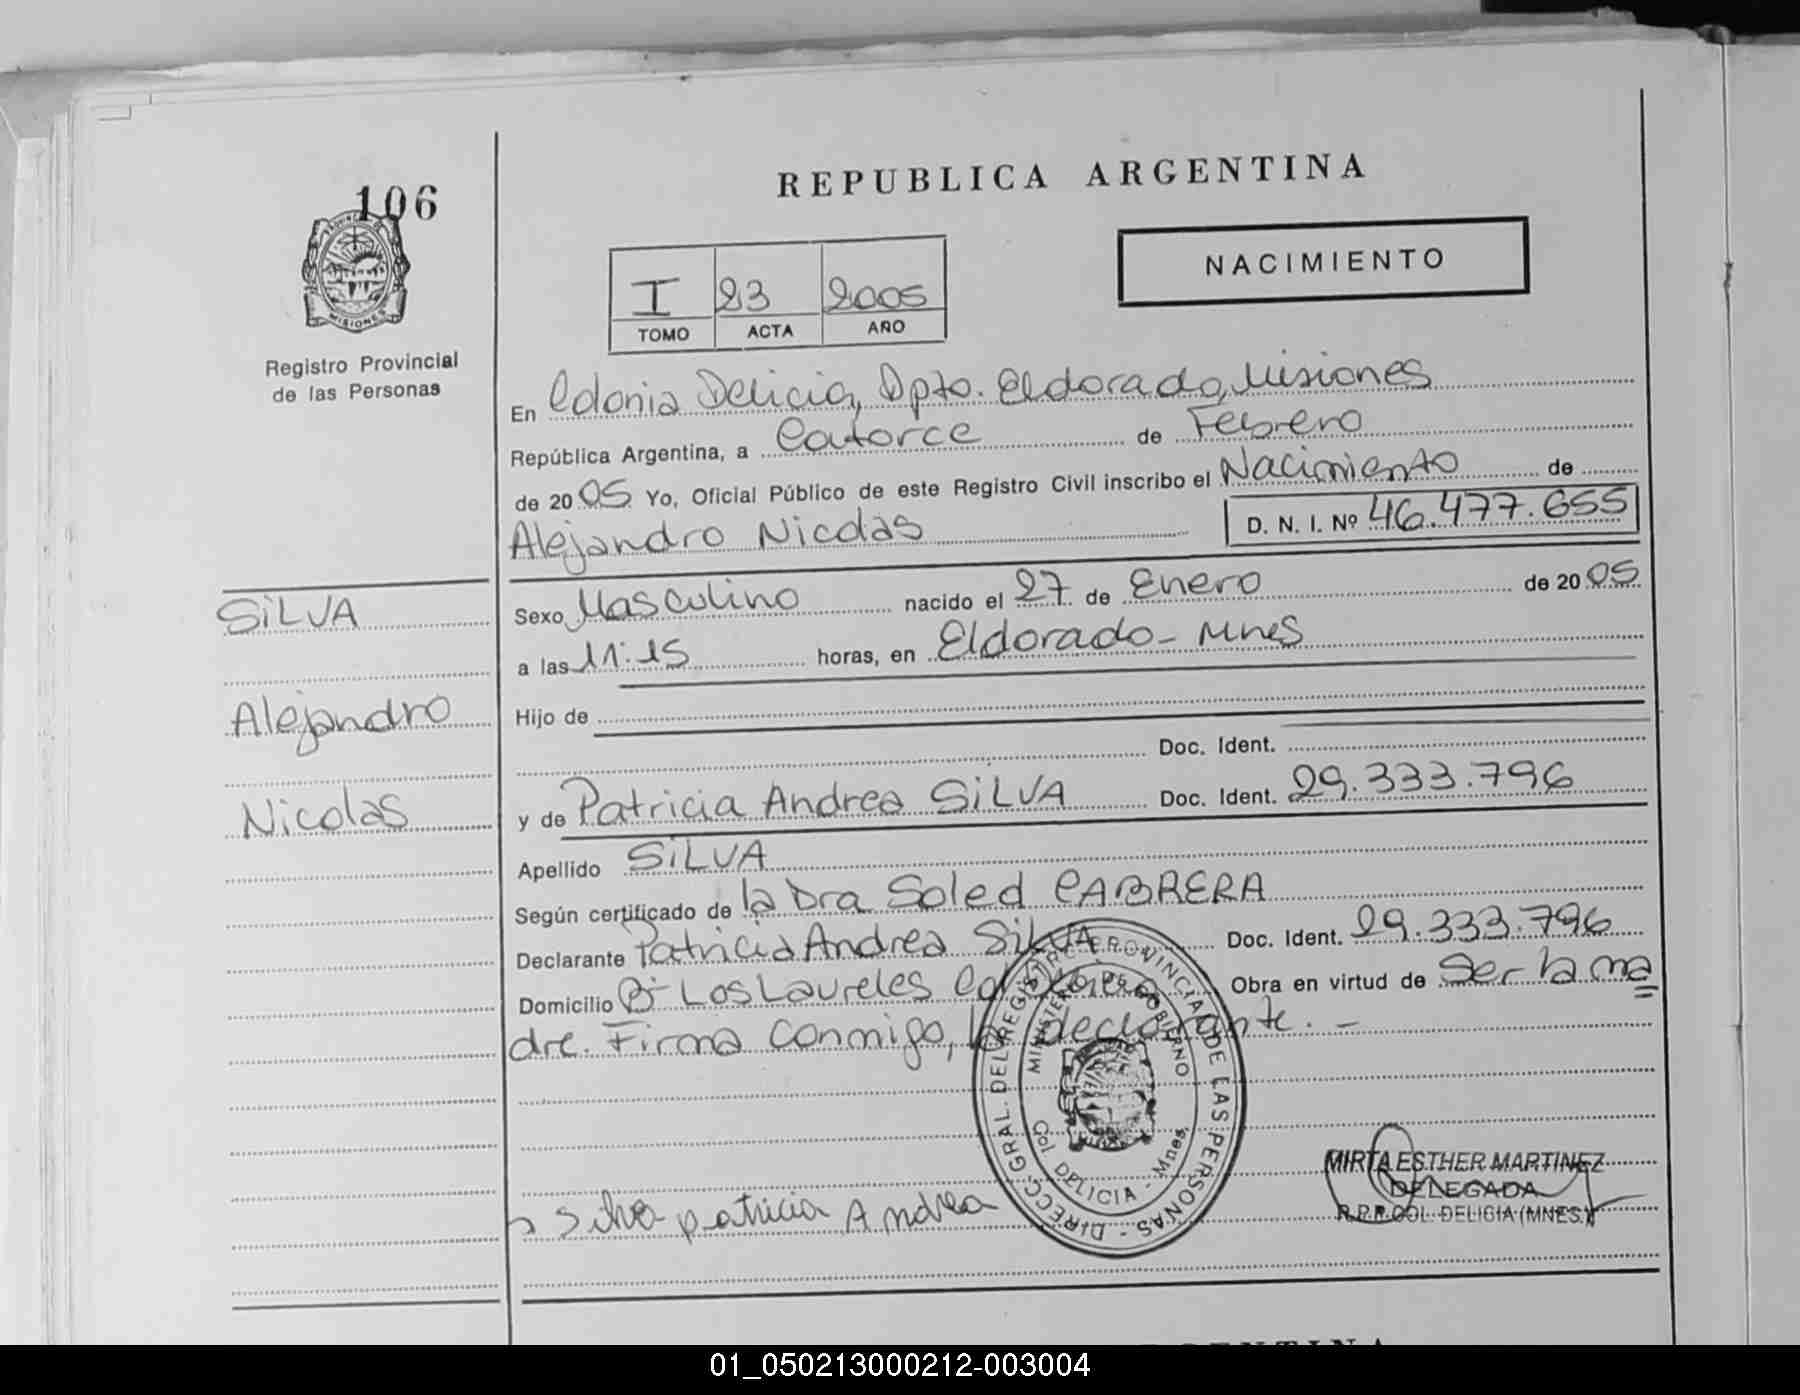 REPUBLICA ARGENTINA
106
PROVINCIA DE
MISIONES
Registro Provincial
de las Personas
NACIMIENTO
I 23 2005
TOMO ACTA AÑO
En Colonia Delicia, Dpto. Eldorado, Misiones
República Argentina, a Catorce de Febrero
de 2005 Yo, Oficial Público de este Registro Civil inscribo el Nacimiento de
Alejandro Nicolás D. N. I. Nº 46.477.655
SILVA
Alejandro
Nicolas
Sexo Masculino nacido el 27 de Enero de 2005
a las 11:15 horas, en Eldorado - Mnes
Hijo de
Doc. Ident.
y de Patricia Andrea SILVA Doc. Ident. 29.333.796
Apellido SILVA
Según certificado de la Dra Soled CABRERA
Declarante Patricia Andrea SILVA Doc. Ident. 29.333.796
Domicilio Bº Los Laureles Obra en virtud de Ser la ma
dre. Firma conmigo, la declarante. -
DIRECC. GRAL. DEL REGISTRO PROVINCIAL DE LAS PERSONAS -
MINISTERIO DE GOBIERNO
Col. DELICIA - Mnes.
Silva patricia Andrea
MIRTA ESTHER MARTINEZ
DELEGADA
R.P.P. COL. DELICIA (MNES.)
01_050213000212-003004